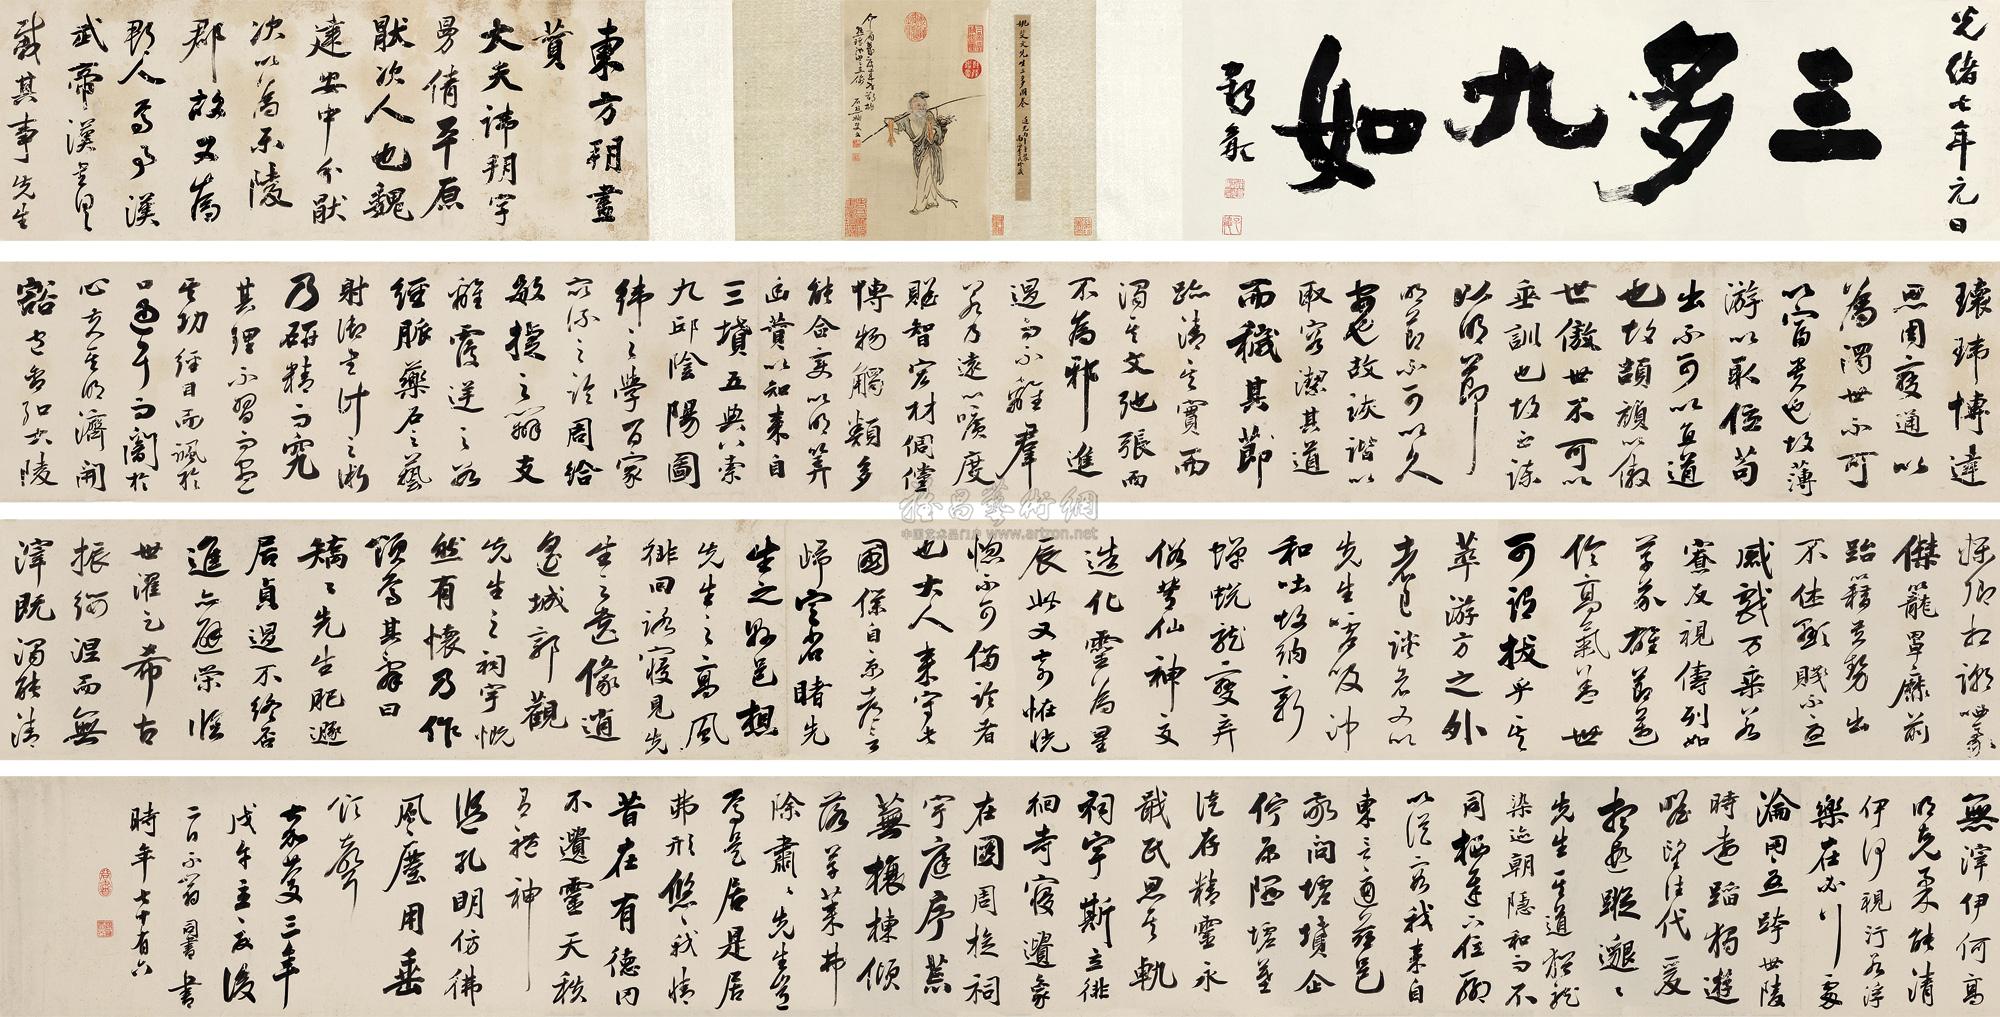 光緒七年元日
三多九如
東方朔畫
贊
大夫諱朔字
曼倩平原
厭次人也魏
建安中分厭
次以為樂陵
郡故又為
郡人焉事漢
武帝漢書具
載其事先生
瓌瑋博達
思周變通以
為濁世不可
以富貴也故薄
游以取位苟
出不可以直道
也故頡頏以傲
世傲世不可以
垂訓也故正諫
以明節
明節不可以久
安也故詼諧以
取容潔其道
而穢其節
跡清其質而
濁其文弛張而
不為邪進
退而不離羣
若乃遠心曠度
贍智宏材倜儻
博物觸類多
能合變以明筭
幽贊以知來自
三墳五典八索
九邱陰陽圖
緯之學百家
眾流之論周給
敏捷之辯支
離覆逆之數
經脈藥石之藝
射御書計之術
乃研精而究
其理不習而盡
其功經目而諷於
口過耳而闇於
心夫其明濟開
豁包含弘大陵
轢卿相謿哂豪
傑籠罩靡前
跆籍貴勢出
不休顯賤不憂
戚戲萬乘若
寮友視儔列如
草芥雄節邁
倫高氣蓋世
可謂拔乎其
萃游方之外
者已談者又以
先生噓吸沖
和吐故納新
蟬蛻龍變棄
俗登仙神交
造化靈為星
辰此又奇怪恍
惚不可備論者
也大人來守此
國僕自京都言
歸定省睹先
生之縣邑想
先生之高風
徘徊路寢見先
生之遺像逍
遙城郭觀
先生之祠宇慨
然有懷乃作
頌焉其辭曰
矯矯先生肥遯
居貞退不終否
進亦避榮臨
世濯足希古
振纓涅而無
滓既濁能清
無滓伊何高
明克柔能清
伊何視汙若浮
樂在必行處
淪罔憂跨世陵
時遠蹈獨遊
瞻望往代爰
想遐蹤邈邈
先生其道猶龍
染迹朝隱和而不
同棲遲下位聊
以從容我來自
東言適茲邑
敬問墟墳企
佇原隰墟墓
徒存精靈永
戢民思其軌
祠宇斯立徘
徊寺寢遺象
在圖周旋祠
宇庭序荒
蕪榱棟傾
落草萊弗
除肅肅先生豈
焉是居是居
弗形悠悠我情
昔在有德罔
不遺靈天秩
有禮神
監孔明仿彿
風塵用垂
頌聲
嘉慶三年
戊午立夏後
二日不翁同書書
時年七十有六